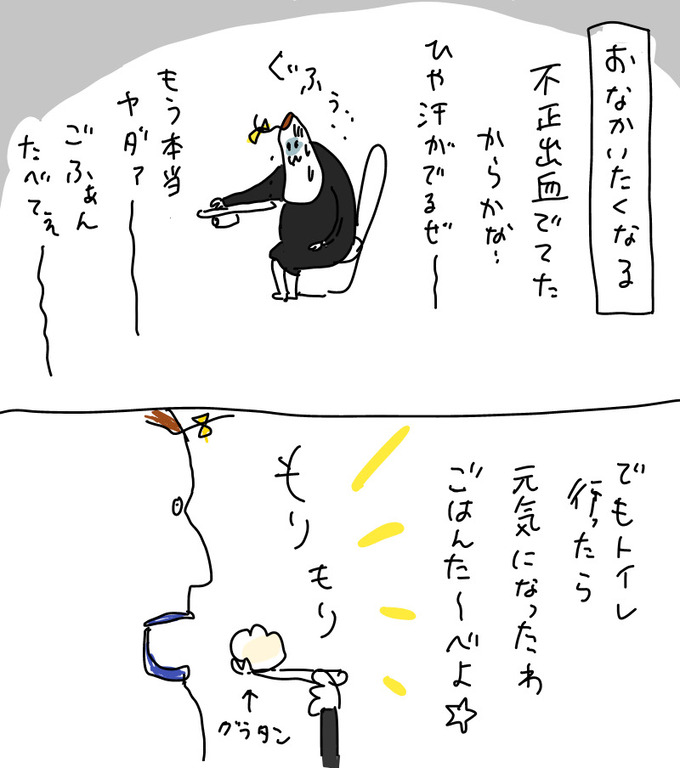 おなかいたくなる
不正出血ででてた
からかな…
ひや汗がでるぜ〜
ぐふぅ…
もう本当
ヤダァ〜
ごふぁん
たべてぇ〜
でもトイレ
行ったら
元気になったわ
ごはんた〜べよ☆
もりもり
↑
グラタン